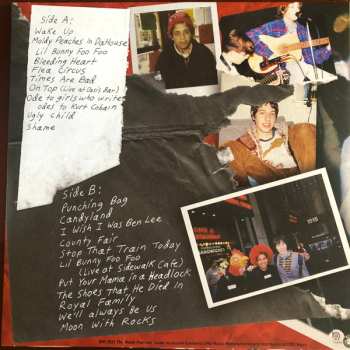 Side A:
Wake Up
Moldy Peaches in DaHouse
Lil Bunny Foo Foo
Bleeding Heart
Flea Circus
Times Are Bad
On Top (Live at Dan's Bar)
Ode to girls who write
odes to Kurt Cobain
Ugly Child
Shame
Side B:
Punching Bag
Candyland
I Wish I Was Ben Lee
County Fair
Stop That Train Today
Lil Bunny Foo Foo
(Live at Sidewalk Cafe)
Put Your Mama in a Headlock
The Shoes That He Died In
Royal Family
We'll always Be Us
Moon With Rocks
1515